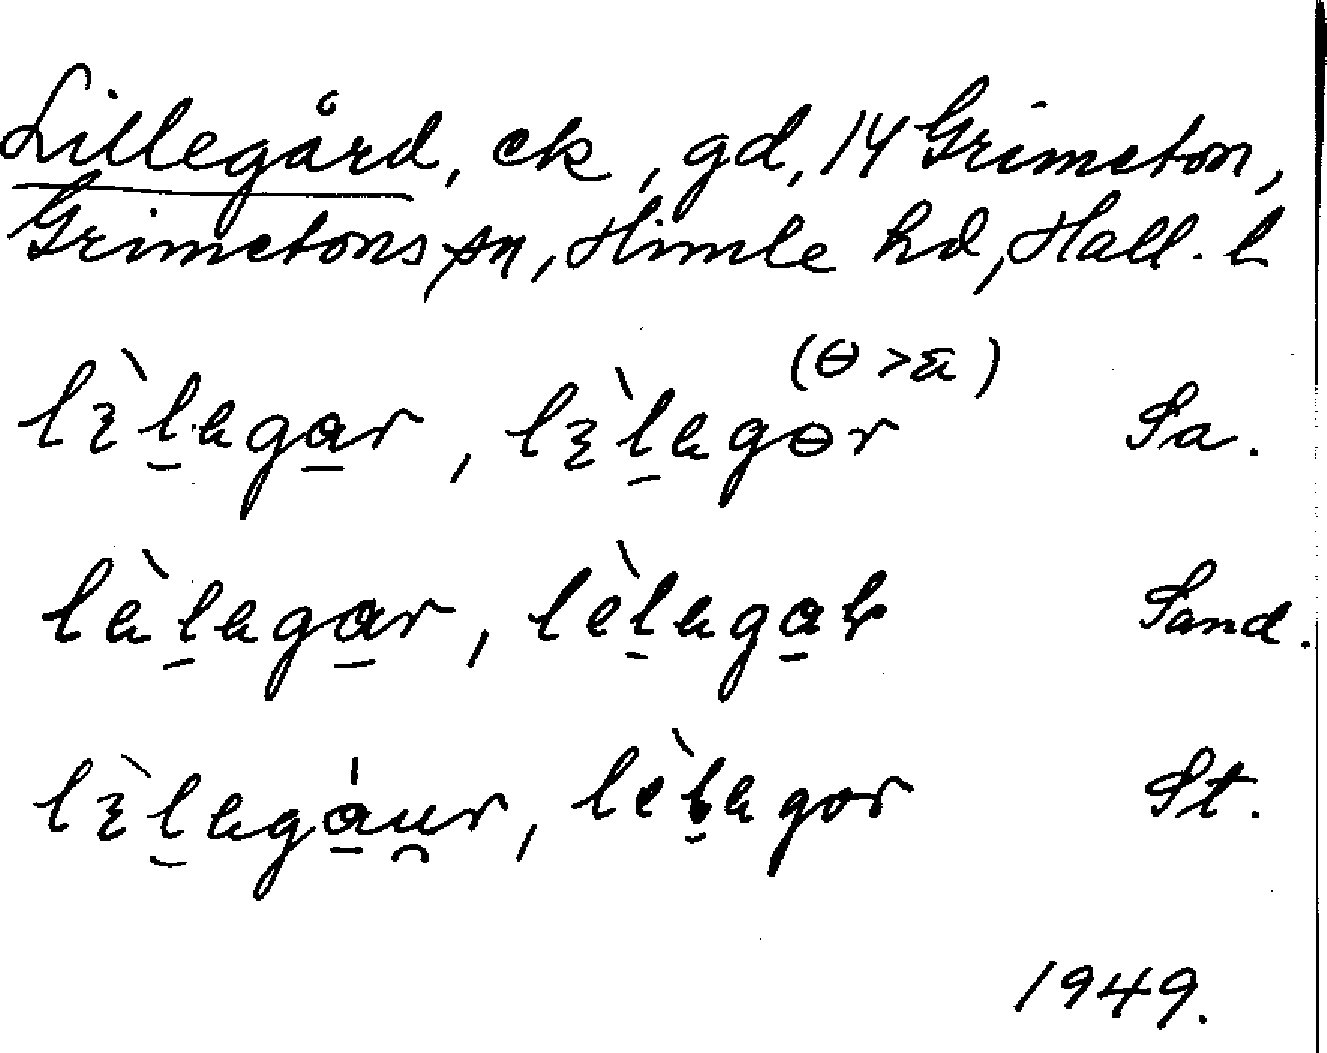 Lillegård, ck, gd, 14 Grimeton,
Grimetons sn, Himle hd, Hall. l
(ɵ > a)
lɛ̀lagar, lɛ̀lagɵr Sa.
làlagar, lèlagar Sand.
lɛ̀lagáur, lèlagor St.
1949.